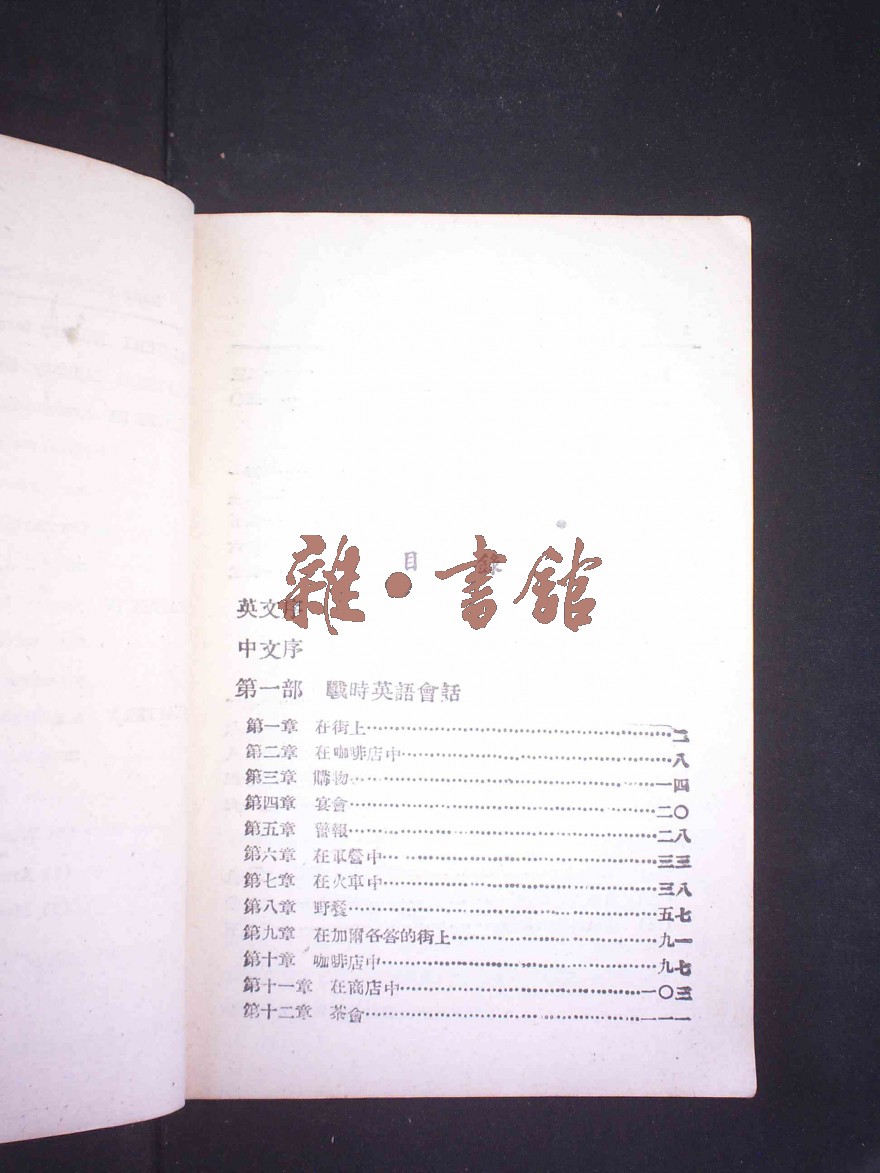 目錄
雜·書館
英文序
中文序
第一部 戰時英語會話
第一章 在街上……二
第二章 在咖啡店中……八
第三章 購物……一四
第四章 宴會……二〇
第五章 警報……二八
第六章 在軍營中……三三
第七章 在火車中……三八
第八章 野餐……五七
第九章 在加爾各答的街上……九一
第十章 咖啡店中……九七
第十一章 在商店中……一〇三
第十二章 茶會……一一一